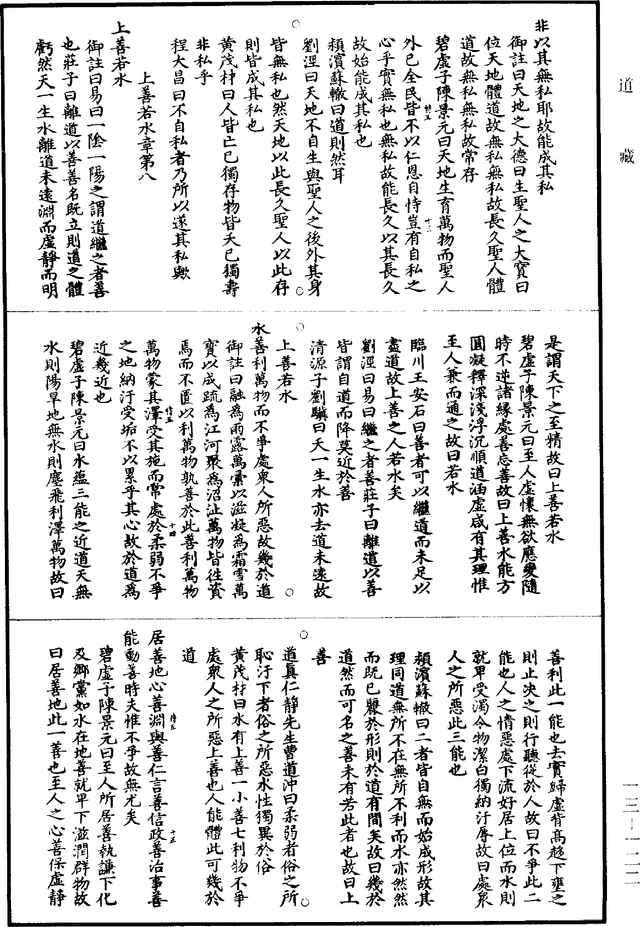 道藏
非以其無私耶故能成其私
御註曰天地之大德曰生聖人之大寶曰
位天地體道故無私無私故長久聖人體
道故無私無私故常存
碧虛子陳景元曰天地生育萬物而聖人
外已全民皆不以仁恩自恃豈有自私之
心乎實無私也無私故能長久以其長久
故始能成其私也
頴濱蘇轍曰道則然耳
劉涇曰天地不自生與聖人之後外其身
皆無私也然天地以此長久聖人以此存
則皆成其私也
黃茂材曰人皆亡已獨存物皆夭已獨壽
非私乎
程大昌曰不自私者乃所以遂其私歟
上善若水章第八
上善若水
御註曰易曰一陰一陽之謂道繼之者善
也莊子曰離道以善善名既立則道之體
虧然天一生水離道未遠淵而虛靜而明
是謂天下之至精故曰上善若水
碧虛子陳景元曰至人虛懷無欲應變隨
時不逆諸緣處善忘善故曰上善水能方
圓凝釋深淺浮沉順道涵虛咸有其理惟
至人兼而通之故曰若水
臨川王安石曰善者可以繼道而未足以
盡道故上善之人若水矣
劉涇曰易曰繼之者善莊子曰離道以善
皆謂自道而降莫近於善
清源子劉驥曰天一生水亦去道未遠故
上善若水
水善利萬物而不爭處衆人所惡故幾於道
御註曰融為雨露萬彙以滋凝為霜雪萬
寶以成疏為江河聚為沼沚萬物皆徃資
焉而不匱以利萬物孰善於此善利萬物
萬物蒙其澤受其施而常處於柔弱不爭
之地納汙受垢不以累乎其心故於道為
近幾近也
碧虛子陳景元曰水蘊三能之近道天無
水則陽旱地無水則塵飛利澤萬物故曰
善利此一能也去實歸虛背高趍下壅之
則止決之則行聽從於人故曰不爭此二
能也人之情惡處下流好居上位而水則
就卑受濁令物潔白獨納汙辱故曰處衆
人之所惡此三能也
頴濱蘇轍曰二者皆自無而始成形故其
理同道無所不在無所不利而水亦然然
而既已麗於形則於道有間矣故曰幾於
道然而可名之善未有若此者也故曰上
善
道真仁靜先生曹道沖曰柔弱者俗之所
恥汙下者俗之所惡水性獨異於俗
黃茂材曰水有上善一小善七利物不爭
處衆人之所惡上善也人能體此可幾於
道
居善地心善淵與善仁言善信政善治事善
能動善時夫惟不爭故無尤矣
碧虛子陳景元曰至人所居善執謙下化
及鄉黨如水在地善就卑下滋潤群物故
曰居善地此一善也至人之心善保虛靜
十三
十四
十五
一三-一二二